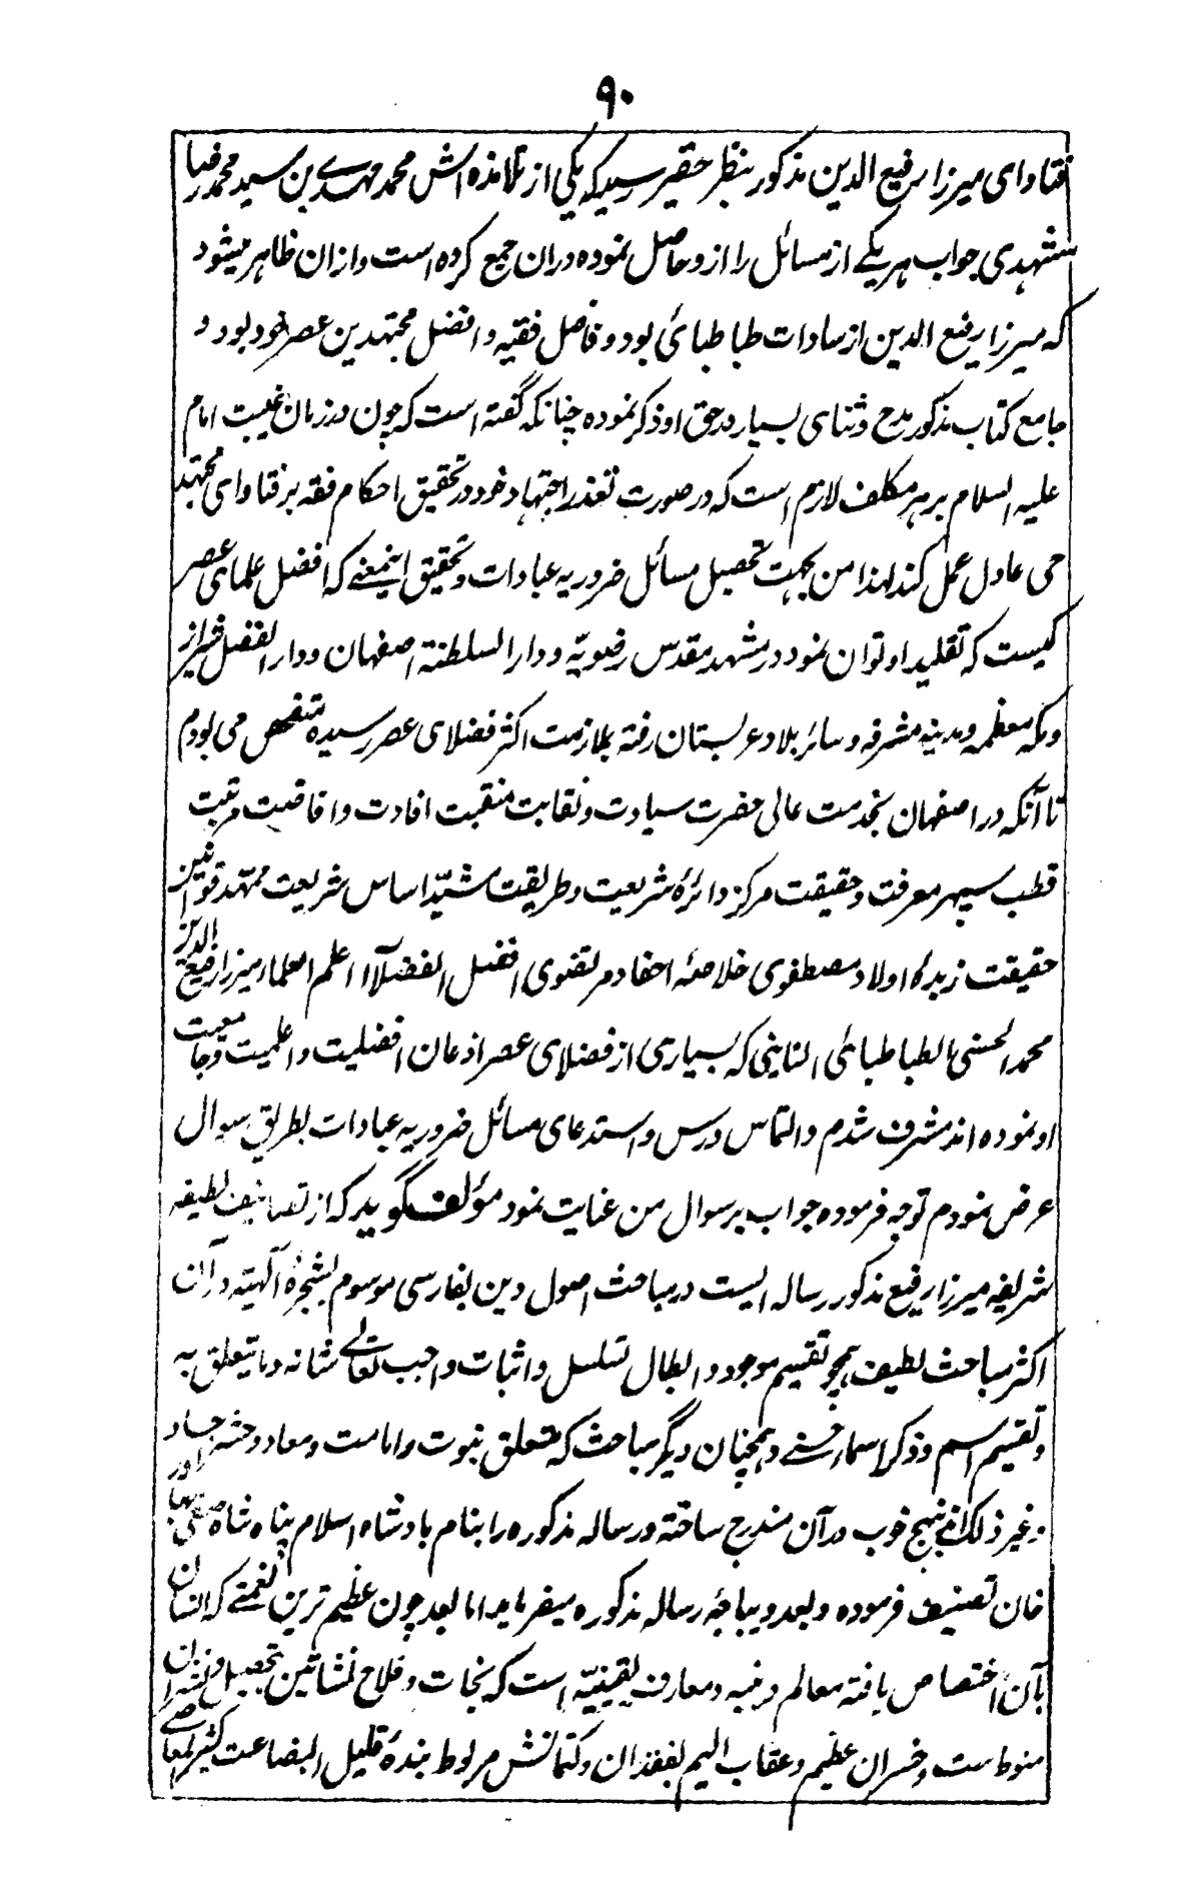 ۹۰
فتاوای میرزا رفیع الدین مذکور بنظر حقیر رسید که یکی از تلامذه اش محمد مهدی بن سید محمد رضا
مشهدی جواب هر یکے از مسائل را از و حاصل نموده دران جمع کرده است و ازان ظاهر میشود
که میرزا رفیع الدین از سادات طباطبائی بود و فاضل فقیه و افضل مجتهدین عصر خود بود و
جامع کتاب مذکور مدح و ثنای بسیار در حق او ذکر نموده چنانکه گفته است که چون در زمان غیبت امام
علیه السلام بر هر مکلف لازم است که در صورت تعذر اجتهاد خود در تحقیق احکام فقه بر فتاوای مجتهد
حی عادل عمل کند لهذا من بجهت تحصیل مسائل ضروریه عبادات و تحقیق اینمعنے که افضل علمای عصر
کیست که تقلید او توان نمود در مشهد مقدس رضویّه و دار السلطنة اصفهان و دار الفضل شیراز
و مکه معظمه و مدینه مشرفه و سائر بلاد عربستان رفته بملازمت اکثر فضلای عصر رسیده متفحص می بودم
تا آنکه در اصفهان بخدمت عالی حضرت سیادت و نقابت منقبت افادت و افاضت مرتبت
قطب سپهر معرفت و حقیقت مرکز دائرهٔ شریعت و طریقت مشیّد اساس شریعت ممهّد قوانین
حقیقت زبدهٔ اولاد مصطفوی خلاصهٔ احفاد مرتضوی افضل الفضلآا اعلم العلماء میرزا رفیع الدین
محمد الحسنی الطباطبائی النایینی که بسیاری از فضلای عصر اذعان افضلیت و اعلمیت و جامعیت
او نموده اند مشرف شدم و التماس درس و استدعای مسائل ضروریه عبادات بطریق سوال
عرض نمودم توجه فرموده جواب بر سوال من عنایت نمود مؤلف گوید که از تصانیف لطیفه
شریفه میرزا رفیع مذکور رساله ایست در مباحث اصول دین بفارسی موسوم بشجرهٔ آلهیّه در آن
اکثر مباحث لطیف همچو تقسیم موجود و ابطال تسلسل و اثبات واجب تعالے شانه و ما یتعلق به
و تقسیم اسم و ذکر اسماء حسنے و همچنان دیگر مباحث که متعلق نبوت و امامت و معاد و حشر اجساد
و غیر ذلک اند بنهج خوب در آن مندرج ساخته و رساله مذکوره را بنام بادشاه اسلام پناه شاه صفی بهادر
خان تصنیف فرموده و بعد دیباچهٔ رساله مذکوره میفرماید اما بعد چون عظیم ترین نعمتے که انسان
بآن اختصاص یافته معالم دینیه و معارف یقینیّه است که نجات و فلاح نشاتین بتحصیل و نشر آن
منوط است و خسران عظیم و عقاب الیم بفقدان و کتمانش مربوط بندهٔ قلیل البضاعت کثیر المعاصے